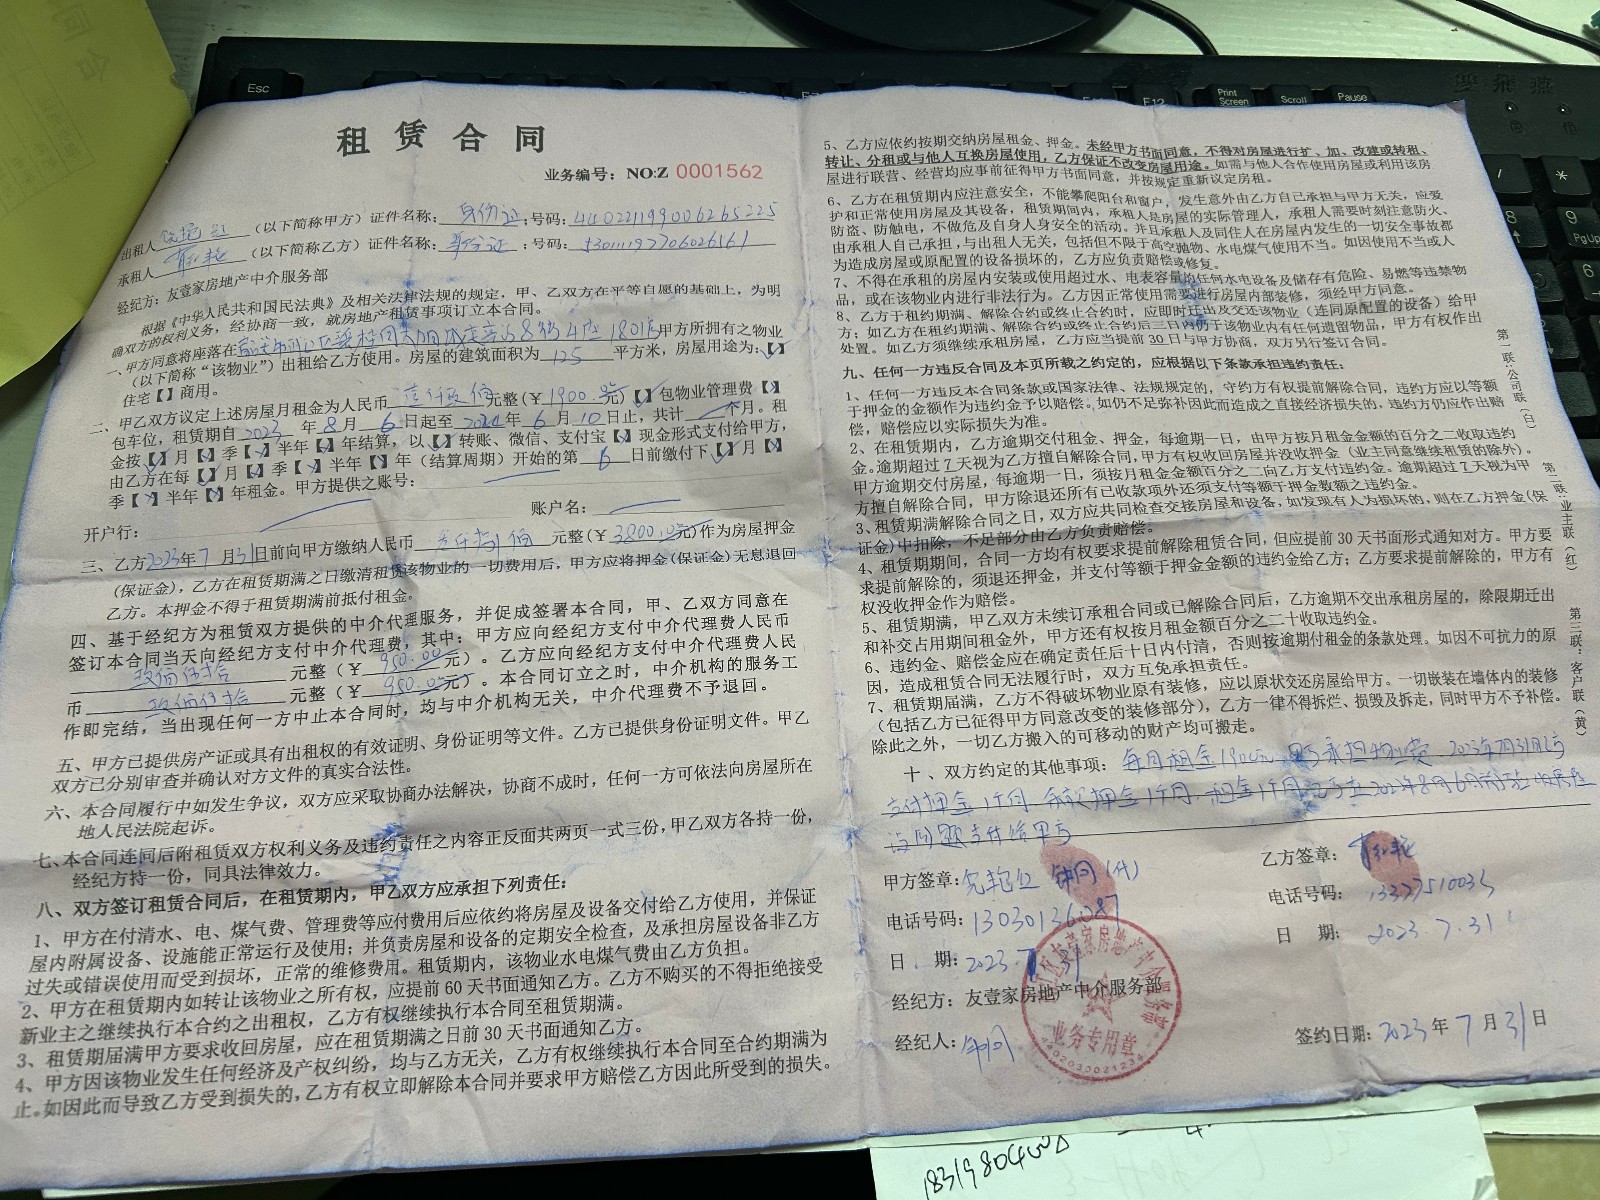 租 赁 合 同
业务编号：NO:Z 0001562
出租人 （以下简称甲方）证件名称：身份证；号码：440221199006265225
承租人 （以下简称乙方）证件名称：身份证；号码：
经纪方：友壹家房地产中介服务部
根据《中华人民共和国民法典》及相关法律法规的规定，甲、乙双方在平等自愿的基础上，为明
确双方的权利义务，经协商一致，就房地产租赁事项订立本合同。
一、甲方同意将座落在 8 1801房甲方所拥有之物业
（以下简称“该物业”）出租给乙方使用。房屋的建筑面积为 125 平方米，房屋用途为：【】
住宅【】商用。
二、甲乙双方议定上述房屋月租金为人民币 元整（￥1900.00元）【】包物业管理费【】
包车位，租赁期自2023年8月6日起至2024年6月10日止，共计 个月。租
金按【】月【】季【】半年【】年结算，以【】转账、微信、支付宝【】现金形式支付给甲方，
由乙方在每【】月【】季【】半年【】年（结算周期）开始的第 6 日前缴付下【】月【】
季【】半年【】年租金。甲方提供之账号：
开户行： 账户名：
三、乙方2023年7月31日前向甲方缴纳人民币 元整（￥3800.00元）作为房屋押金
（保证金），乙方在租赁期满之日缴清租赁该物业的一切费用后，甲方应将押金（保证金）无息退回
乙方。本押金不得于租赁期满前抵付租金。
四、基于经纪方为租赁双方提供的中介代理服务，并促成签署本合同，甲、乙双方同意在
签订本合同当天向经纪方支付中介代理费，其中：甲方应向经纪方支付中介代理费人民币
玖佰伍拾 元整（￥ 950.00元）。乙方应向经纪方支付中介代理费人民
币 玖佰伍拾 元整（￥ 950.00元）。本合同订立之时，中介机构的服务工
作即完结，当出现任何一方中止本合同时，均与中介机构无关，中介代理费不予退回。
五、甲方已提供房产证或具有出租权的有效证明、身份证明等文件。乙方已提供身份证明文件。甲乙
双方已分别审查并确认对方文件的真实合法性。
六、本合同履行中如发生争议，双方应采取协商办法解决，协商不成时，任何一方可依法向房屋所在
地人民法院起诉。
七、本合同连同后附租赁双方权利义务及违约责任之内容正反面共两页一式三份，甲乙双方各持一份，
经纪方持一份，同具法律效力。
八、双方签订租赁合同后，在租赁期内，甲乙双方应承担下列责任：
1、甲方在付清水、电、煤气费、管理费等应付费用后应依约将房屋及设备交付给乙方使用，并保证
屋内附属设备、设施能正常运行及使用；并负责房屋和设备的定期安全检查，及承担房屋设备非乙方
过失或错误使用而受到损坏，正常的维修费用。租赁期内，该物业水电煤气费由乙方负担。
2、甲方在租赁期内如转让该物业之所有权，应提前 60 天书面通知乙方。乙方不购买的不得拒绝接受
新业主之继续执行本合约之出租权，乙方有权继续执行本合同至租赁期满。
3、租赁期届满甲方要求收回房屋，应在租赁期满之日前 30 天书面通知乙方。
4、甲方因该物业发生任何经济及产权纠纷，均与乙方无关，乙方有权继续执行本合同至合约期满为
止。如因此而导致乙方受到损失的，乙方有权立即解除本合同并要求甲方赔偿乙方因此所受到的损失。
5、乙方应依约按期交纳房屋租金、押金。未经甲方书面同意，不得对房屋进行扩、加、改建或转租、
转让、分租或与他人互换房屋使用，乙方保证不改变房屋用途。如需与他人合作使用房屋或利用该房
屋进行联营、经营均应事前征得甲方书面同意，并按规定重新议定房租。
6、乙方在租赁期内应注意安全，不能攀爬阳台和窗户，发生意外由乙方自己承担与甲方无关，应爱
护和正常使用房屋及其设备，租赁期间内，承租人是房屋的实际管理人，承租人需要时刻注意防火、
防盗、防触电，不做危及自身人身安全的活动。并且承租人及同住人在房屋内发生的一切安全事故都
由承租人自己承担，与出租人无关，包括但不限于高空抛物、水电煤气使用不当。如因使用不当或人
为造成房屋或原配置的设备损坏的，乙方应负责赔偿或修复。
7、不得在承租的房屋内安装或使用超过水、电表容量的任何水电设备及储存有危险、易燃等违禁物
品，或在该物业内进行非法行为。乙方因正常使用需要进行房屋内部装修，须经甲方同意。
8、乙方于租约期满、解除合约或终止合约时，应即时迁出及交还该物业（连同原配置的设备）给甲
方；如乙方在租约期满、解除合约或终止合约后三日内仍于该物业内有任何遗留物品，甲方有权作出
处置。如乙方须继续承租房屋，乙方应当提前 30 日与甲方协商，双方另行签订合同。
九、任何一方违反合同及本页所载之约定的，应根据以下条款承担违约责任：
1、任何一方违反本合同条款或国家法律、法规规定的，守约方有权提前解除合同，违约方应以等额
于押金的金额作为违约金予以赔偿。如仍不足弥补因此而造成之直接经济损失的，违约方仍应作出赔
偿，赔偿应以实际损失为准。
2、在租赁期内，乙方逾期交付租金、押金，每逾期一日，由甲方按月租金金额的百分之二收取违约
金。逾期超过 7 天视为乙方擅自解除合同，甲方有权收回房屋并没收押金（业主同意继续租赁的除外）。
甲方逾期交付房屋，每逾期一日，须按月租金金额百分之二向乙方支付违约金。逾期超过 7 天视为甲
方擅自解除合同，甲方除退还所有已收款项外还须支付等额于押金数额之违约金。
3、租赁期满解除合同之日，双方应共同检查交接房屋和设备，如发现有人为损坏的，则在乙方押金（保
证金）中扣除，不足部分由乙方负责赔偿。
4、租赁期期间，合同一方均有权要求提前解除租赁合同，但应提前 30 天书面形式通知对方。甲方要
求提前解除的，须退还押金，并支付等额于押金金额的违约金给乙方；乙方要求提前解除的，甲方有
权没收押金作为赔偿。
5、租赁期满，甲乙双方未续订承租合同或已解除合同后，乙方逾期不交出承租房屋的，除限期迁出
和补交占用期间租金外，甲方还有权按月租金额百分之二十收取违约金。
6、违约金、赔偿金应在确定责任后十日内付清，否则按逾期付租金的条款处理。如因不可抗力的原
因，造成租赁合同无法履行时，双方互免承担责任。
7、租赁期届满，乙方不得破坏物业原有装修，应以原状交还房屋给甲方。一切嵌装在墙体内的装修
（包括乙方已征得甲方同意改变的装修部分），乙方一律不得拆烂、损毁及拆走，同时甲方不予补偿。
除此之外，一切乙方搬入的可移动的财产均可搬走。
十、双方约定的其他事项：每月租金1900元 承担物业费 2023年7月31日乙方
支付押金1个月 押金1个月，租金1个月 2023年8月6日
支付给甲方
甲方签章： 乙方签章：
电话号码：13030136087 电话号码：
日 期：2023.7.31 日 期：2023.7.31
经纪方：友壹家房地产中介服务部
经纪人： 签约日期：2023年7月31日
业务专用章
第一联：公司联（白）
第二联：业主联（红）
第三联：客户联（黄）
Esc
F12
Print Screen
Scroll
Pause
PgUp
8
9
5
6